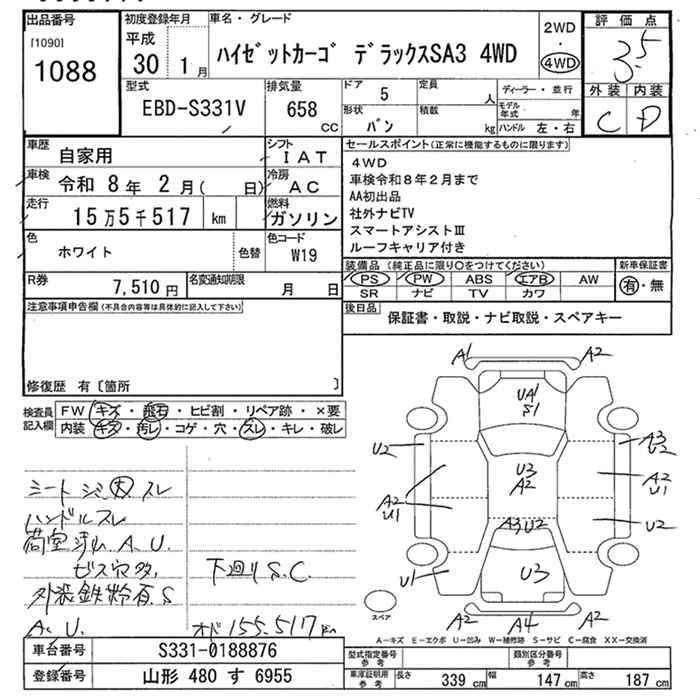 出品番号
[1090]
1088
初度登録年月
平成
30 1月
車名・グレード
ハイゼットカーゴ デラックスSA3 4WD
2WD
・
4WD
評価点
3.5
外装 内装
C D
型式
EBD-S331V
排気量
658
CC
ドア 5
定員 人
形状
バン
積載 kg
ディーラー・並行
モデル年式 年
ハンドル 左・右
車歴
自家用
シフト
IAT
車検 令和 8年 2月( 日)
冷房
AC
走行
15万5千517 km
燃料
ガソリン
色
ホワイト
色替
色コード
W19
R券
7,510円
名変通知期限
月 日
セールスポイント(正常に機能するものに限ります)
4WD
車検令和8年2月まで
AA初出品
社外ナビTV
スマートアシストⅢ
ルーフキャリア付き
装備品 (純正品に限り○をつけてください)
新車保証書
PS PW ABS エアB AW
SR ナビ TV カワ
有・無
後日品
保証書・取説・ナビ取説・スペアキー
注意事項申告欄(不具合内容等は具体的に記入して下さい)
修復歴 有〔箇所 〕
検査員
記入欄
FW キズ・飛石・ヒビ割・リペア跡・×要
内装 キズ・汚レ・コゲ・穴・スレ・キレ・破レ
シート シミ 大 スレ
ハンドルスレ
荷室 汚れ A. U.
ビス穴多
外装鉄粉有. S
A. U.
下廻り S.C.
オド 155.517km
A1 A2
UA1
S1
U2
A3
U2
U3
A2
A2
U1
A2
U1
A3 U2
U2
U1
U3
A2 A4 A2
スペア
A-キズ E-エクボ U-凹み W-補修跡 S-サビ C-腐食 XX-交換済
車台番号
S331-0188876
登録番号
山形 480 す 6955
型式指定番号
参考
類別区分番号
参考
車庫証明用
参考
長さ 339 cm
幅 147 cm
高さ 187 cm